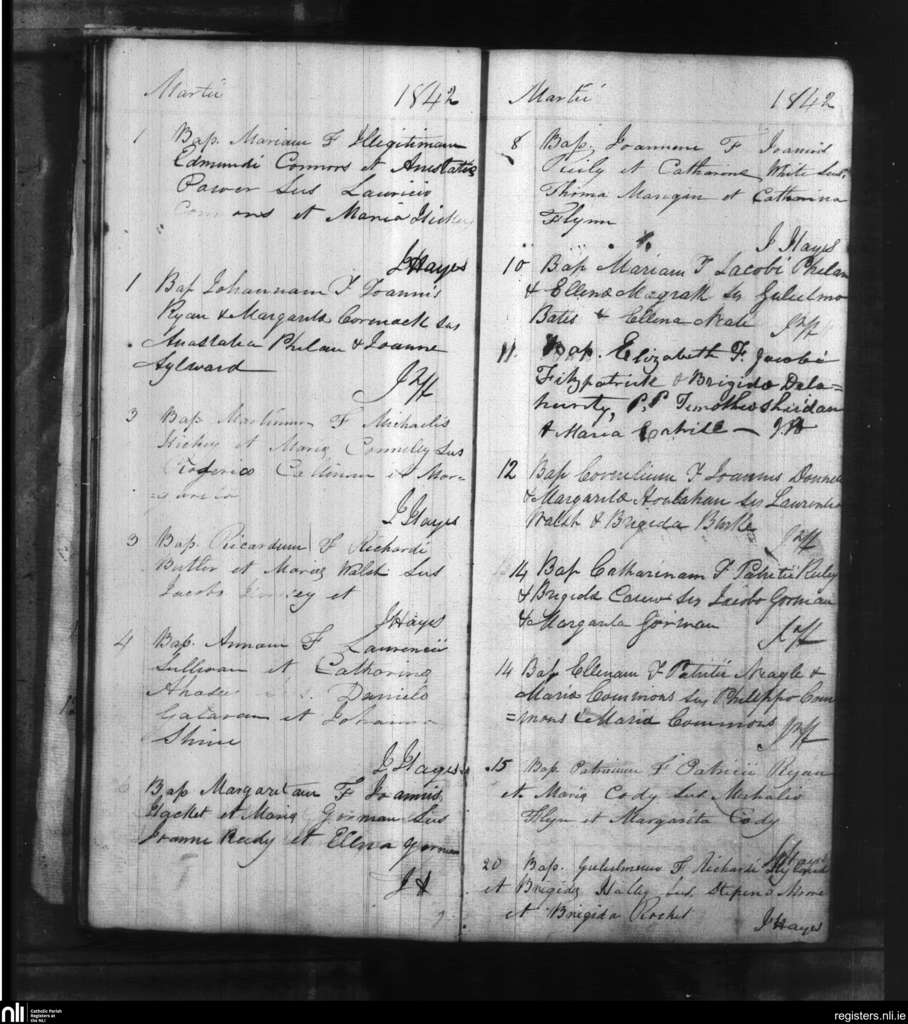 Martii 1842
1 Bap. Mariam F Illegitimam
Edmundi Connors et Anastatia
Power Sus Lauricio
Connors et Maria Hickey
J Hayes
1 Bap Johannam F Joannis
Ryan & Margarita Cormack Sus
Anastatia Phelan & Joanne
Aylward
3 Bap Martinum F Michaelis
Hickey et Maria Connelly Sus
et Mar=
=garita
J Hayes
3 Bap. Ricardum F Richardi
Butler et Maria Walsh Sus
Jacobo et
J Hayes
4 Bap. Annam F Laurencii
Sullivan et Catharina
Daniele
et Johanna
Shine
J Hayes
Bap Margaretam F Joannis
Hacket et Maria Gorman Sus
Joanne Reedy et Ellena Gorman
J H
Martii 1842
8 Bap. Joannem F Joannis
et Catharina White Sus.
Thoma Mangan et Catharina
Flynn
J Hayes
10 Bap Mariam F Jacobi Phelan
& Ellena Magrath Ss Gulielmo
Bates & Ellena Neale
11 Bap. Elizabeth F. Jacobi
Fitzpatrick & Brigida Dela=
hunty, P.P Timotheo Sheidan
& Maria Cahill — JH
12 Bap Cornelium F Joannis
& Margarita Houlahan Ss Laurentio
Walsh & Brigida Burke
14 Bap Catharinam F Patritii Reiley
& Brigida Carew Ss Jacobo Gorman
& Margarita Gorman
14 Bap Ellenam F Patritii Neagle &
Maria Commons Ss Philippo Com
=mons & Maria Commons
15 Bap Patricium F Patricii Ryan
et Maria Cody Sus Michalis
Flyn et Margarita Cody
J Hayes
20 Bap. Gulielmum F Richardi
et Brigida Hally Sus Stepeno
et Brigida Rochet
J Hayes
nli
Catholic Parish
Registers at
the NLI
registers.nli.ie